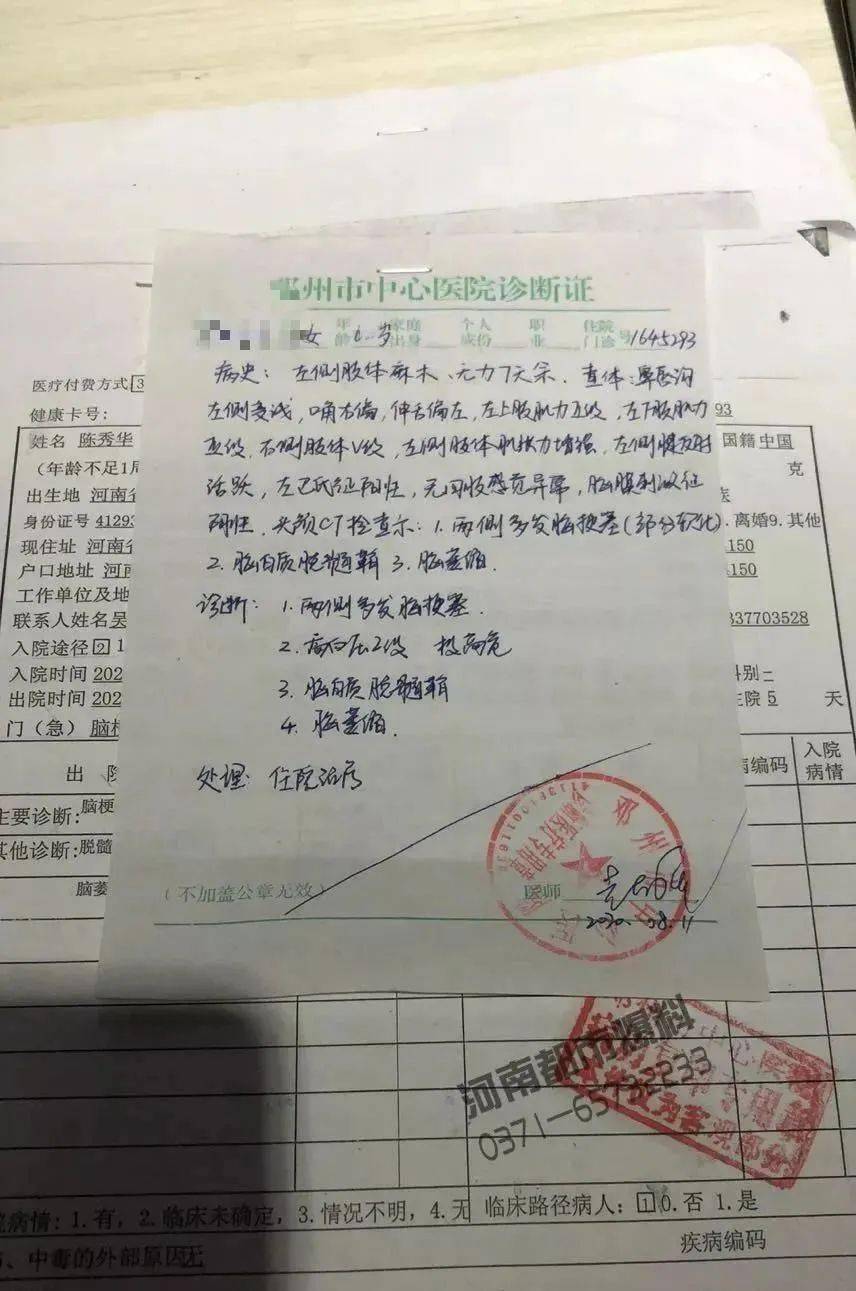 州市中心医院诊断证
女 年龄 岁 家庭出身 个人成份 职业 住院门诊号1645293
病史：左侧肢体麻木、无力7天余．查体：鼻唇沟
左侧变浅，嘴右偏，伸舌偏左，左上肢肌力Ⅲ级，左下肢肌力
Ⅲ级，右侧肢体Ⅴ级，左侧肢体肌张力增强，左侧腱反射
活跃，左巴氏征阳性，无四肢感觉异常，脑膜刺激征
阴性．头颅CT检查示：1.两侧多发脑梗塞(部分软化)
2.脑白质脱髓鞘 3.脑萎缩．
诊断：1.两侧多发脑梗塞．
2.高血压2级 极高危
3.脑白质脱髓鞘
4.脑萎缩．
处理：住院治疗
(不加盖公章无效)
医师
2020.08.11
医疗付费方式 3
健康卡号：
93
姓名 陈秀华
国籍 中国
（年龄不足1周
克
出生地 河南省
身份证号 41293
离婚9.其他
现住址 河南
4150
户口地址 河南
4150
工作单位及地
联系人姓名吴
337703528
入院途径 2 1
入院时间 202
科别二
出院时间 202
住院 5 天
门（急）脑梗
出 院
病编码
入院病情
主要诊断:脑梗
其他诊断:脱髓
脑萎
河南都市爆料
0371—65732233
院病情: 1.有, 2.临床未确定, 3.情况不明, 4.无 临床路径病人: 1 0.否 1.是
、中毒的外部原因无
疾病编码